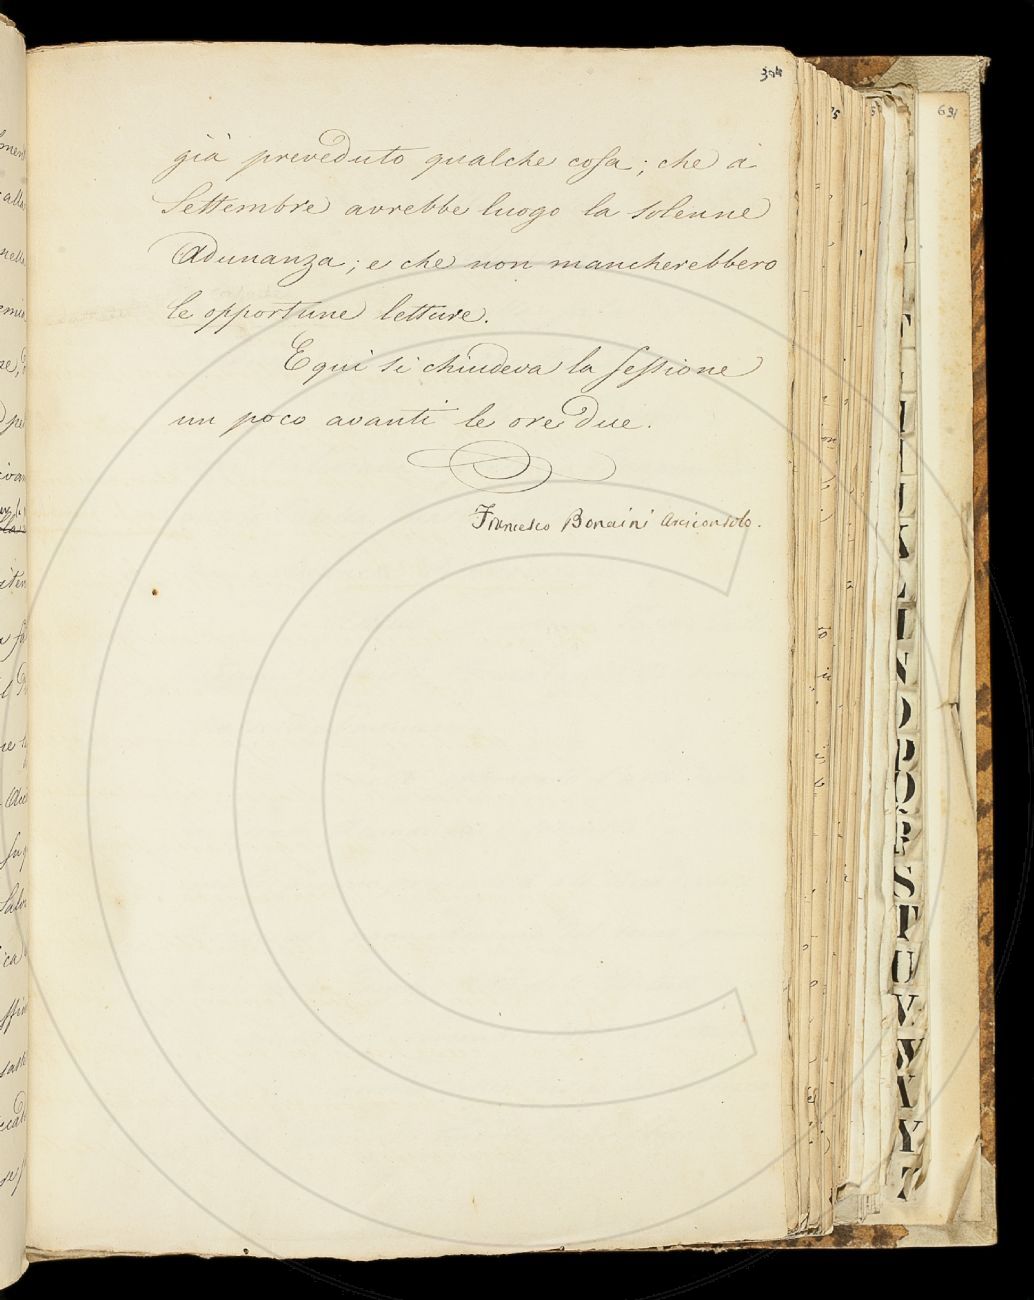 304
già preveduto qualche cosa; che a
Settembre avrebbe luogo la solenne
Adunanza; e che non mancherebbero
le opportune letture.
E qui si chiudeva la sessione
un poco avanti le ore due.
Francesco Bonaini Arciconsolo.
691
K
L
N
O
P
Q
R
S
T
U
V
W
X
Y
Z